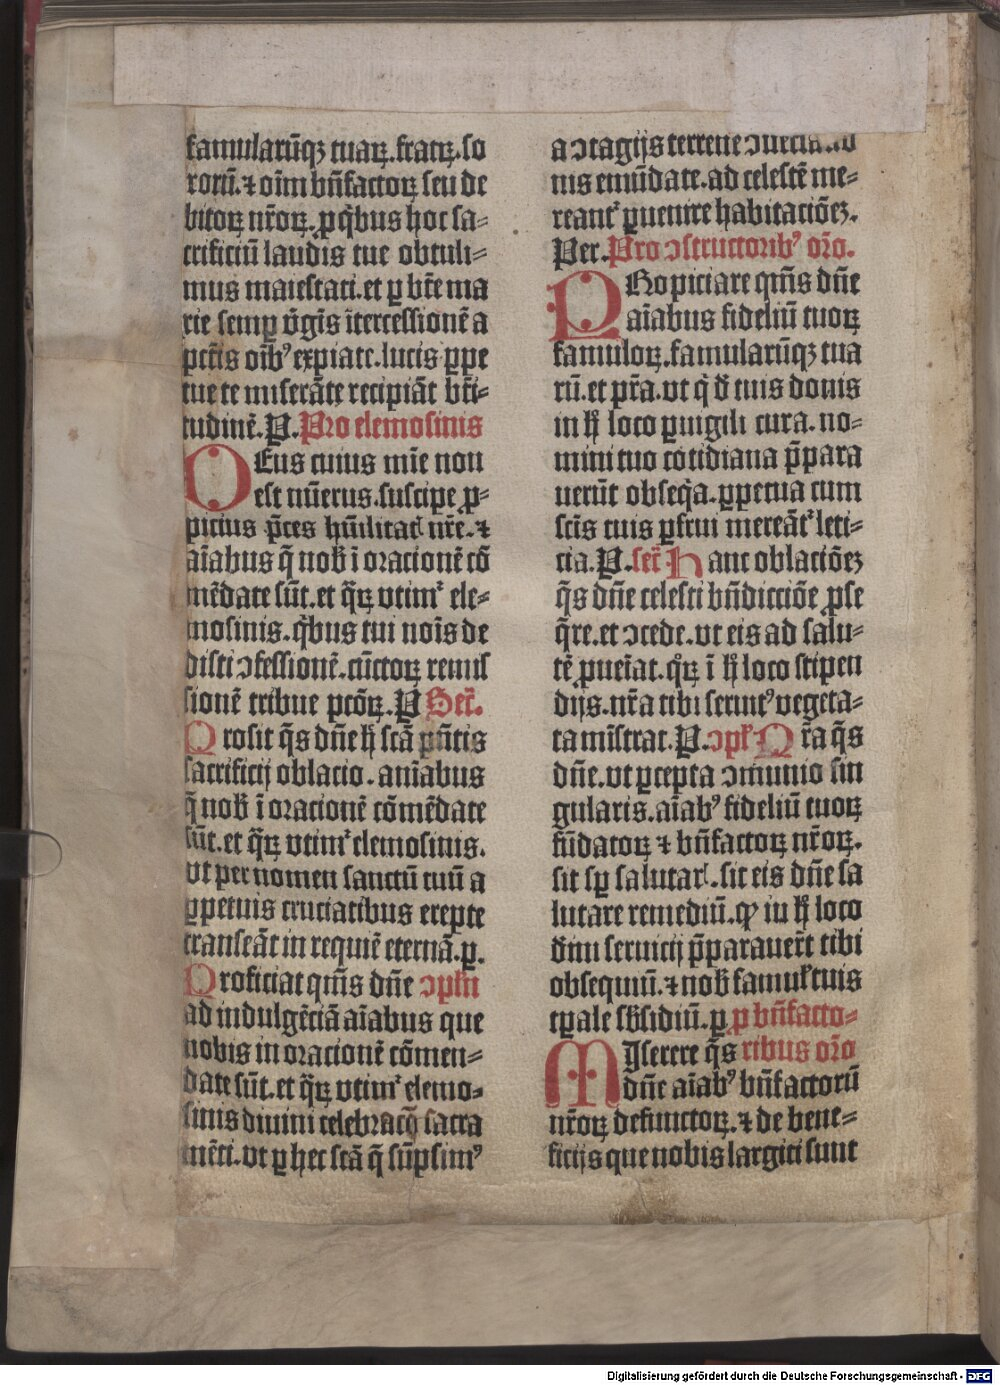 famularūqꝫ tuaꝝ. fratꝝ. so
rorū. ⁊ oīm bn̄factoꝝ seu de
bitoꝝ nr̄oꝝ. ꝓ qͥbus hoc sa-
crificiū laudis tue obtuli-
mus maiestati. et ꝑ bt̄e ma
rie semꝑ ṽgīs ītercessionē a
pctīs oīb⁹ expiate. lucis ꝑpe
tue te miserāte recipiāt bt̄i-
tudinē. P. Pro elemosinis
DEus cuius mīe non
est nūerus. suscipe ꝓ-
picius p̄ces hūilitatꝭ nr̄e. ⁊
aīabus q̄ nob̄ ī oracionē cō
mēdate sūt. et q̄ꝝ vtimᷣ ele-
mosinis. qͥbus tui noīs de
disti ɔfessionē. cūctoꝝ remis
sionē tribue pctōꝝ. P Secᷓ.
Prosit q̄s dn̄e ħ scā pn̄tis
sacrificij oblacio. anīabus
q̄ nob̄ ī oracionē cōmēdate
sūt. et q̄ꝝ vtimᷣ elemosinis.
vt per nomen sanctū tuū a
ꝑpetuis cruciatibus erepte
transeāt in requiē eternā. p.
Proficiat qm̄s dn̄e ɔplēn
ad indulgēciā aīabus que
nobis in oracionē cōmen-
date sūt. et q̄ꝝ vtimᷣ elemo-
sinis diuini celebracō̄ sacra
mēti. vt ꝑ hec scā q̄ sūpsim⁹
a ɔtagijs terrene
nis emūdate. ad celestē me-
reantᷣ ꝑuenire habitaciōeꝫ.
Per. Pro ɔstructorib⁹ or̄o.
PRopiciare qm̄s dn̄e
aīabus fideliū tuoꝝ
famuloꝝ. famularūqꝫ tua
rū. et pr̄a. vt qͥ d̄ tuis donis
in ħ loco ꝑuigili cura. no-
mini tuo cotidiana p̄para
uerūt obseq̄a. ꝑpetua cum
scīs tuis ꝑfrui mereātᷣ leti-
cia. P. secᷓ Hanc oblaciōeꝫ
q̄s dn̄e celesti bn̄dicciōe ꝓse
q̄re. et ɔcede. vt eis ad salu-
tē ꝓueīat. qͦꝝ ī ħ loco stipen
dijs. nr̄a tibi seruit⁹ vegeta-
ta mīstrat. P. ɔplᷓ Pr̄a q̄s
dn̄e. vt ꝑcepta ɔmunio sin
gularis. aīab⁹ fideliū tuoꝝ
fūdatoꝝ ⁊ bn̄factoꝝ nr̄oꝝ.
sit sꝑ salutarꝭ. sit eis dn̄e sa
lutare remediū. qꝙ in ħ loco
dīni seruicij p̄parauer̄t tibi
obsequiū. ⁊ nob̄ famul̄ tuis
tꝑale sb̄sidiū. ꝑ ꝓ bn̄facto-
MIserere q̄s ribus or̄o
dn̄e aīab⁹ bn̄factorū
nr̄oꝝ defunctoꝝ. ⁊ de bene-
ficijs que nobis largiti sunt
Digitalisierung gefördert durch die Deutsche Forschungsgemeinschaft - DFG